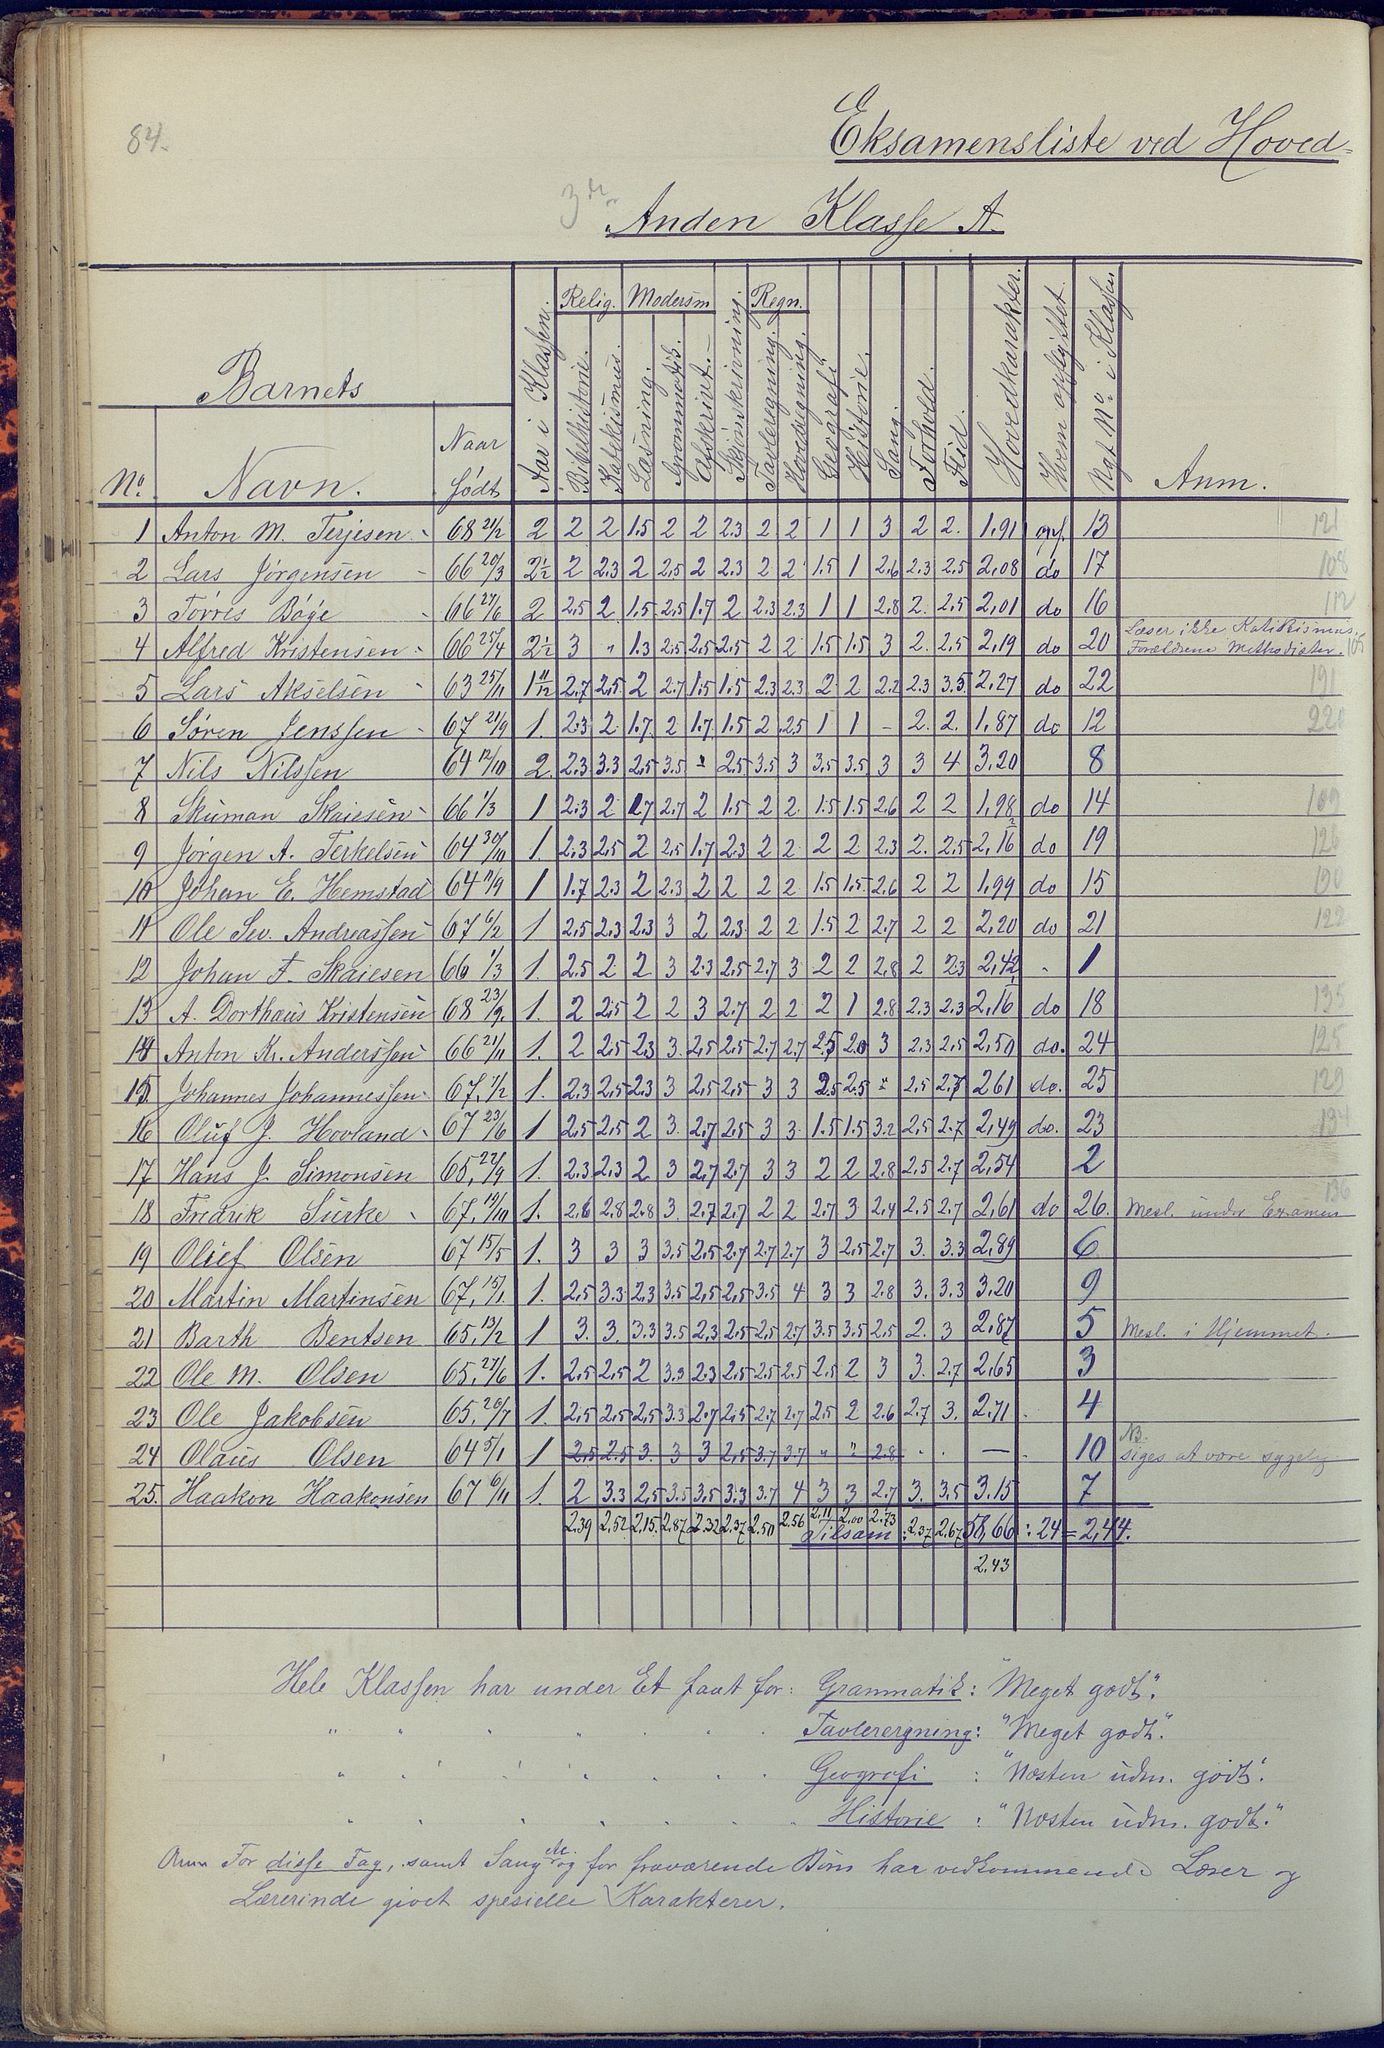 84.
Eksamensliste ved Hoved-
3die
Anden Klasse A.
Relig. Modersm Regn.
Barnets
No. Navn. Naar født Aar i Klassen. Bibelhistorie. Katekismus. Læsning. Grammatik. Afskrivt. Skjönskrivning. Tavleregning. Hovedregning. Geografi Historie. Sang. Forhold. Flid. Hovedkarakter. Hvem opflyttet. Nyt No i Klassen Anm.
1 Anton M. Terjesen 68 21/2 2 2 2 1.5 2 2 2.3 2 2 1 1 3 2 2. 1,91 opf. 13 121
2 Lars Jørgensen 66 20/3 2½ 2 2.3 2 2,5 2 2.3 2 2 1.5 1 2.6 2.3 2.5 2,08 do 17 108
3 Tørres Bøge 66 27/6 2 2,5 2 1.5 2,5 1.7 2 2.3 2.3 1 1 2.8 2. 2,5 2,01 do 16 112
4 Alfred Kristensen 66 25/4 2½ 3 " 1.3 2.5 2,5 2,5 2 2 1.5 1.5 3 2. 2,5 2,19 do 20 Læser ikke Katikismus. Forældrene Methodister. 105
5 Lars Akselsen 63 25/11 1 11/12 2.7 2,5 2 2.7 1.5 1.5 2.3 2.3 2 2 2.2 2.3 3.5 2,27 do 22 191
6 Søren Jenssen 67 21/9 1. 2.3 2 1.7 2 1.7 1.5 2 2.5 1 1 – 2. 2. 1,87 do 12
7 Nils Nilssen 64 12/10 2. 2.3 3.3 2,5 3.5 " 2.5 3.5 3 3.5 3.5 3 3 4 3,20 8
8 Skuman Skaiesen 66 1/3 1 2.3 2 1.7 2.7 2 1.5 2 2 1.5 1.5 2.6 2 2 1,98 do 14 109
9 Jørgen A. Terkelsen 64 30/10 1. 2.3 2,5 2 2,5 1.7 2.3 2 2 2 2 2.3 2. 2,5 2,16 do 19 126
10 Johan E. Hemstad 64 11/9 1 1.7 2.3 2 2.3 2 2 2 2 1.5 1.5 2.6 2 2 1,99 do 15 190
11 Ole Sev. Andreassen 67 6/2 1. 2,5 2.3 2.3 3 2 2.3 2 2 1.5 2 2.7 2 2 2,20 do 21 122
12 Johan F. Skaiesen 66 1/3 1. 2.5 2 2 3 2.3 2,5 2.7 3 2 2 2.8 2 2.3 2,42 1
13 A. Dorthæus Kristensen 68 23/9. 1. 2 2,5 2 2 3 2.7 2 2 2 1 2.8 2.3 2.3 2,16 do 18 135
14 Anton Kr. Anderssen 66 21/11 1. 2 2,5 2.3 3. 2,5 2,5 2.7 2.7 2.5 2.0 3 2.3 2.5 2,50 do. 24 125
15 Johannes Johannessen 67, 1/2 1. 2.3 2,5 2.3 3 2,5 2,5 3 3 2.5 2.5 " 2.5 2.7 2.61 do. 25 129
16 Oluf J. Hovland 67 23/6 1 2,5 2,5 2 3. 2,7 2,5 3 3. 1.5 1.5 3.2 2,5 2.7 2,49 do. 23 134
17 Hans J. Simonsen 65, 22/9 1. 2.3 2,3 2 3 2,7 2.7 3 3 2 2 2.8 2,5 2.7 2,54 2
18 Fredrik Sürke 67, 19/10 1. 2.6 2.8 2.8 3. 2.7 2,7 2 2 2.7 3 2.4 2.5 2.7 2,61 do 26. Mesl. under Examen 136
19 Olief Olsen 67 15/5 1. 3 3 3 3,5 2,5 2.7 2.7 2.7 3 2,5 2.7 3. 3.3 2,89 6
20 Martin Martinsen 67, 15/1 1. 2,5 3.3 2,3 3,5 2,5 2,5 3.5 4 3 3 2.8 3. 3.3 3,20 9
21 Barth Bentsen 65, 13/2 1 3. 3. 3.3 3.5 2.3 2,5 2,5 2.7 3.5 3.5 2.5 2. 3 2,87 5 Mesl. i Hjemmet.
22 Ole M. Olsen 65, 27/6 1. 2,5 2,5 2 3.3 2.3 2.5 2.5 2.5 2,5 2 3 3. 2.7 2,65 3
23 Ole Jakobsen 65, 26/7 1. 2,5 2,5 2,5 3.3 2.7 2,5 2.7 2.7 2,5 2 2.6 2.7 3. 2.71 4
24 Olaus Olsen 64 5/1 1 2,5 2.5 3. 3 3 2,5 3.7 3.7 " " 2.8 – 10 NB. siges at være sygelig
25. Haakon Haakonsen 67 6/11 1. 2 3.3 2,5 3.5 3,5 3.3 3.7 4 3 3 2.7 3. 3,5 3.15 7
2,39 2,52 2,15 2,87 2,32 2,37 2,50 2,56 2,11 2,00 2,73 Tilsam : 2,37 2,67 58,66 : 24 = 2,44.
2,43
Hele Klassen har under Et faat for: Grammatik: "Meget godt".
" " " " " " " Tavleregning: "Meget godt".
" " " " " " " Geografi : "Næsten udm. godt".
" " " " " " " Historie : "Næsten udm. godt."
Anm For disse Fag, samt Sang og for fraværende Børn har vedkommende Lærer og
Lærerinde givet spesielle Karakterer.